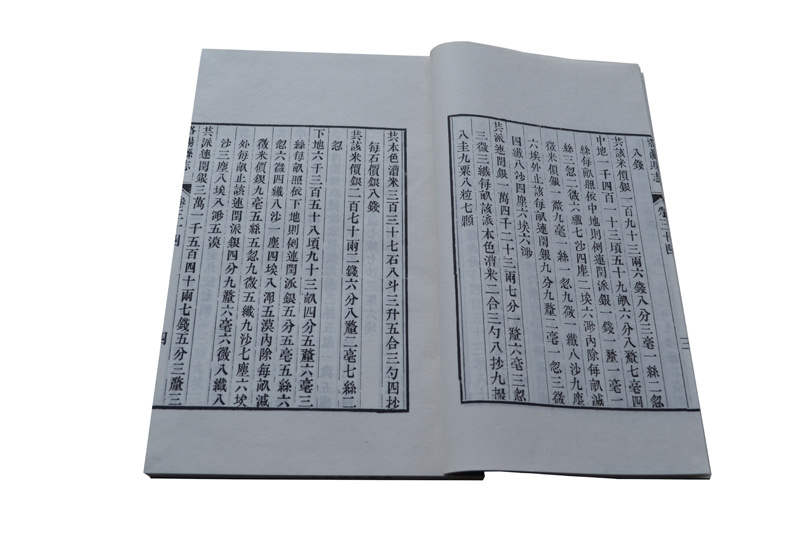 八錢
共該米價銀一百九十三兩六錢八分三毫一絲二忽
中地一千四百一十三頃五十九畝六分八釐七毫四
絲每畝照依中地則例連閏派銀一錢一釐一毫一
絲三忽二微六纖七沙四塵二埃六渺內除每畝減
徵米價銀一釐九毫一絲一忽九微一纖八沙九塵
六埃外止該每畝連閏銀九分九釐二毫一忽三微
四纖八沙四塵六埃六渺
共派連閏銀一萬四千二十三兩七分一釐六毫三忽
三微三纖每畝該派本色漕米二合三勺八抄九撮
八圭九粟八粒七顆
共本色漕米三百三十七石八斗三升五合三勺四抄
每石價銀八錢
共該米價銀二百七十兩二錢六分八釐二毫七絲二
忽
下地六千三百五十八頃九十三畝四分五釐六毫三
絲每畝照依下地則例連閏派銀五分五毫五絲六
忽六微四纖八沙一塵四埃八渺五漠內除每畝減
徵米價銀九毫五絲五忽九微五纖九沙七塵六埃
外每畝止該連閏派銀四分九釐六毫六微八纖八
沙三塵八埃八渺五漠
共派連閏銀三萬一千五百四十兩七錢五分三釐三
洛陽縣志 卷二十四 四